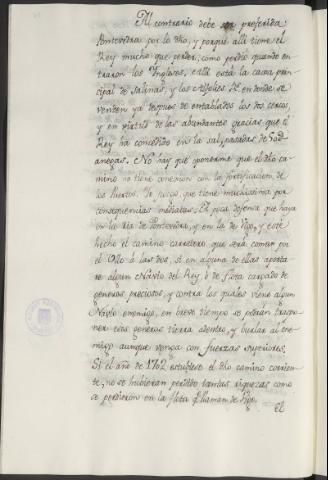 Al contrario debe ser preferida
Pontevedra por lo dho, y porque alli tiene el
Rey mucho que perder, como perdió quando en
traron los Ingleses, alli está la casa prin
cipal de Salinas, y los Alfolies &c. en donde se
venden ya despues de entablados los dos cercos,
y en virtud de las abundantes gracias, que el
Rey ha concedido en la sal, pasadas de
anegas. No hay que ponerme que el dho ca
mino no tiene conexion con la fortificacion de
los Puertos. Yo juzgo, que tiene muchisima por
consequencias mediatas. Es poca defensa que haya
en la Ria de Pontevedra, y en la de Vigo, y esté
hecho el camino carretero que será comun por
el Ollo à las dos, si en alguna de ellas aporta
re algun Navio del Rey, ò de flota cargado de
generos preciosos, y contra los quales viene algun
Navio enemigo, en breve tiempo se podrán transpo
ner esos generos tierra adentro, y burlar al ene
migo aunque venga con fuerzas superiores.
Si el año de 1702 estubiese el dho camino corrien
te, no se hubieran perdido tantas riquezas como
se perdieron en la flota q llaman de Vigo.
el